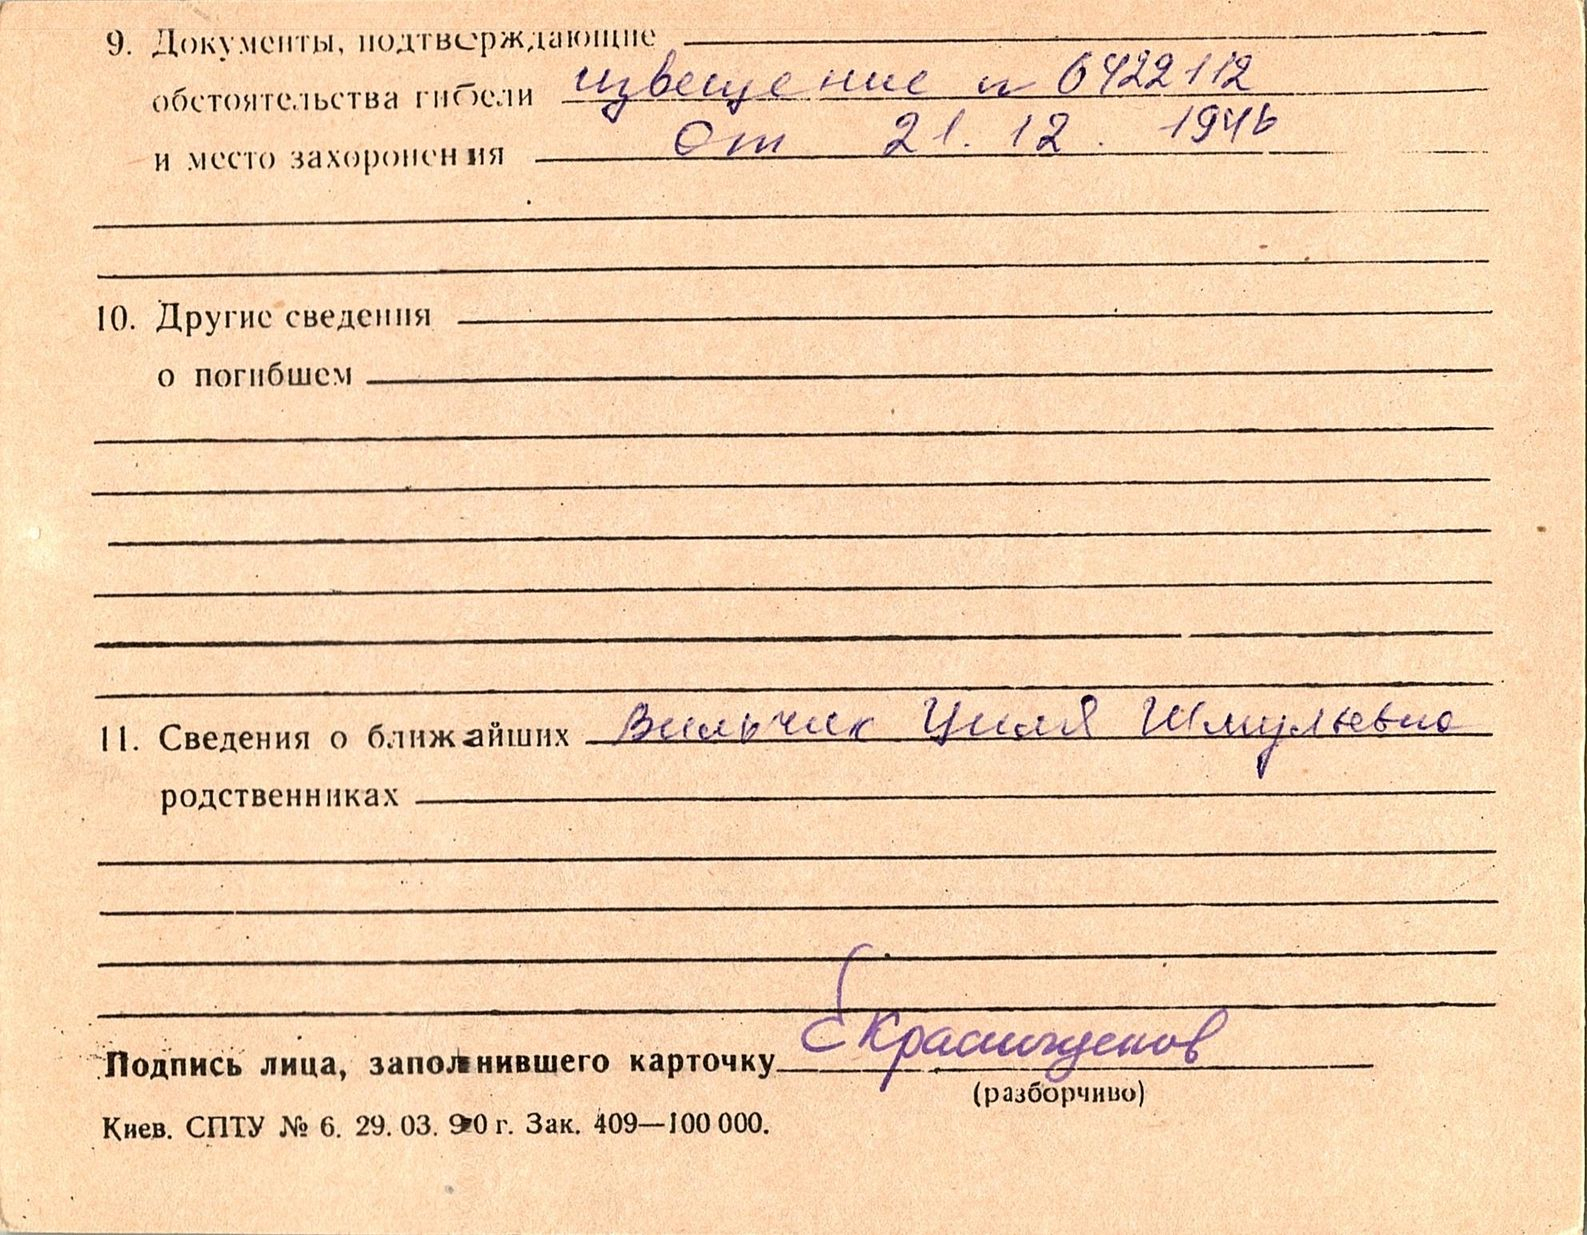 9. Документы, подтверждающие
обстоятельства гибели извещение n 6422112
и место захоронения от 21. 12. 1946
10. Другие сведения
о погибшем
11. Сведения о ближайших Вильчик Циля Шмульевна
родственниках
Подпись лица, заполнившего карточку
(разборчиво)
Киев. СПТУ № 6. 29. 03. 90 г. Зак. 409—100 000.